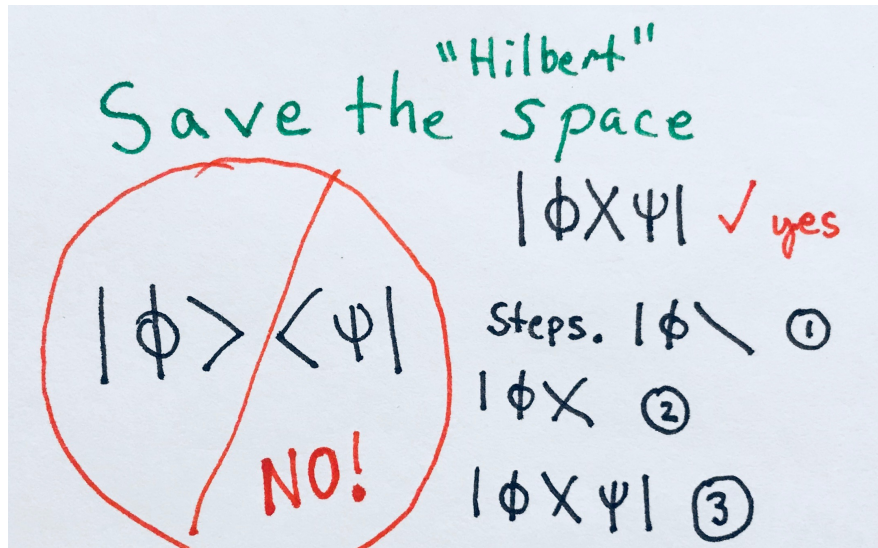 "Hilbert"
Save the space
|ϕXψ| ✓ yes
|ϕ> <ψ|
NO!
Steps. |ϕ\ ①
|ϕX ②
|ϕXψ| ③